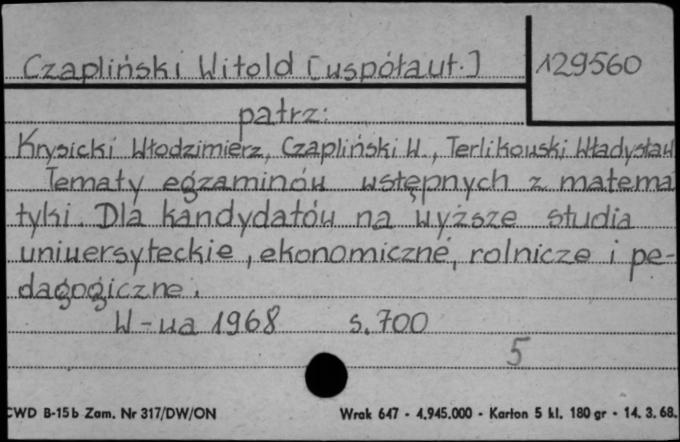 Czapliński Witold [współaut.]
129560
patrz:
Krysicki Włodzimierz, Czapliński W., Terlikowski Władysław
Tematy egzaminów wstępnych z matema
tyki. Dla kandydatów na wyższe studia
uniwersyteckie, ekonomiczne, rolnicze i pe-
dagogiczne.
W-wa 1968 s. 700
5
CWD B-15b Zam. Nr 317/DW/ON Wrak 647 - 4.945.000 - Karton 5 kl. 180 gr - 14. 3. 68.